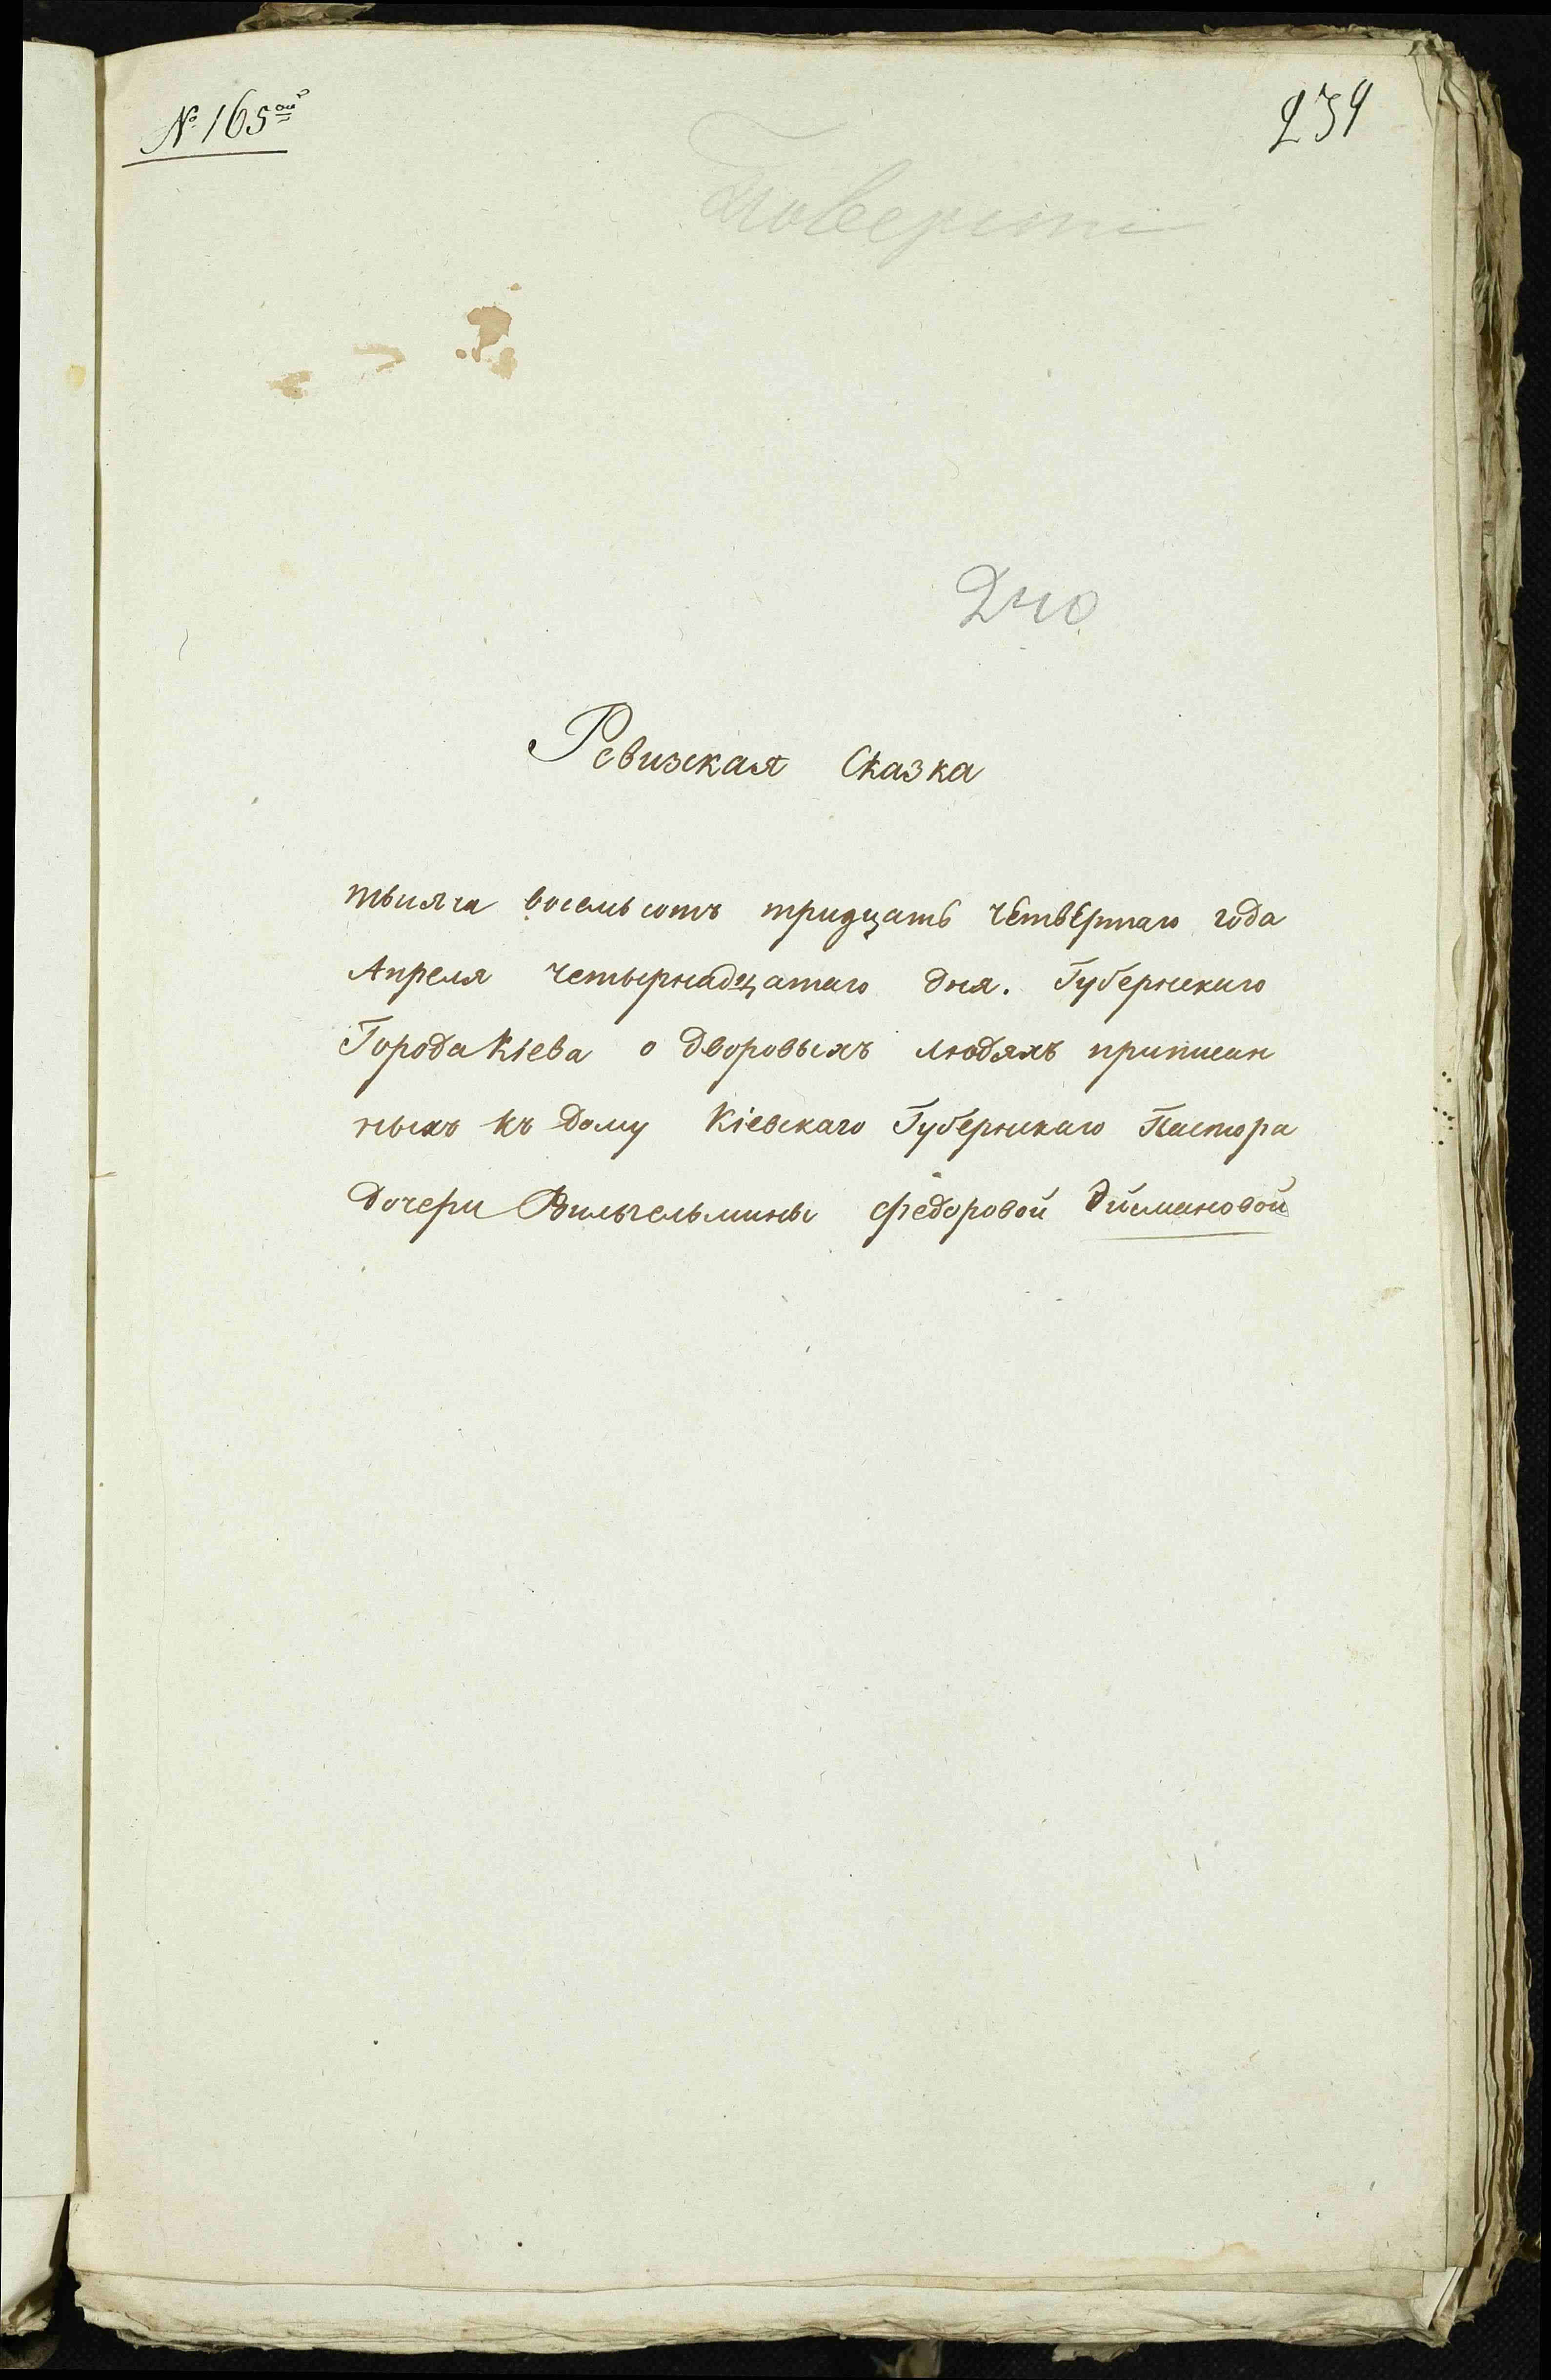 № 165ой
239
Поверить
240
Ревизская Сказка
тысяча восемьсотъ тридцать четвертаго года
Апреля четырнадцатаго дня. Губернскаго
Города Кіева о дворовыхъ людяхъ приписан
ныхъ къ дому Кіевскаго Губернскаго Пастора
дочери Вильгельмины Федоровой